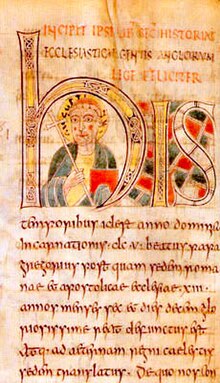 INCIPIT IPSIUS HISTORIAE
ECCLESIASTICAE GENTIS ANGLORUM
LEGE FELICITER
HIS
temporibus id est anno dominicae
incarnationis dc v beatus papa
gregorius post quam sedem roma
nae et apostolicae ecclesiae xiii
annos menses sex et dies decem glo
riosissime rexit defunctus est
atque ad aeternam regni caelestis
sedem translatus. De quo nos